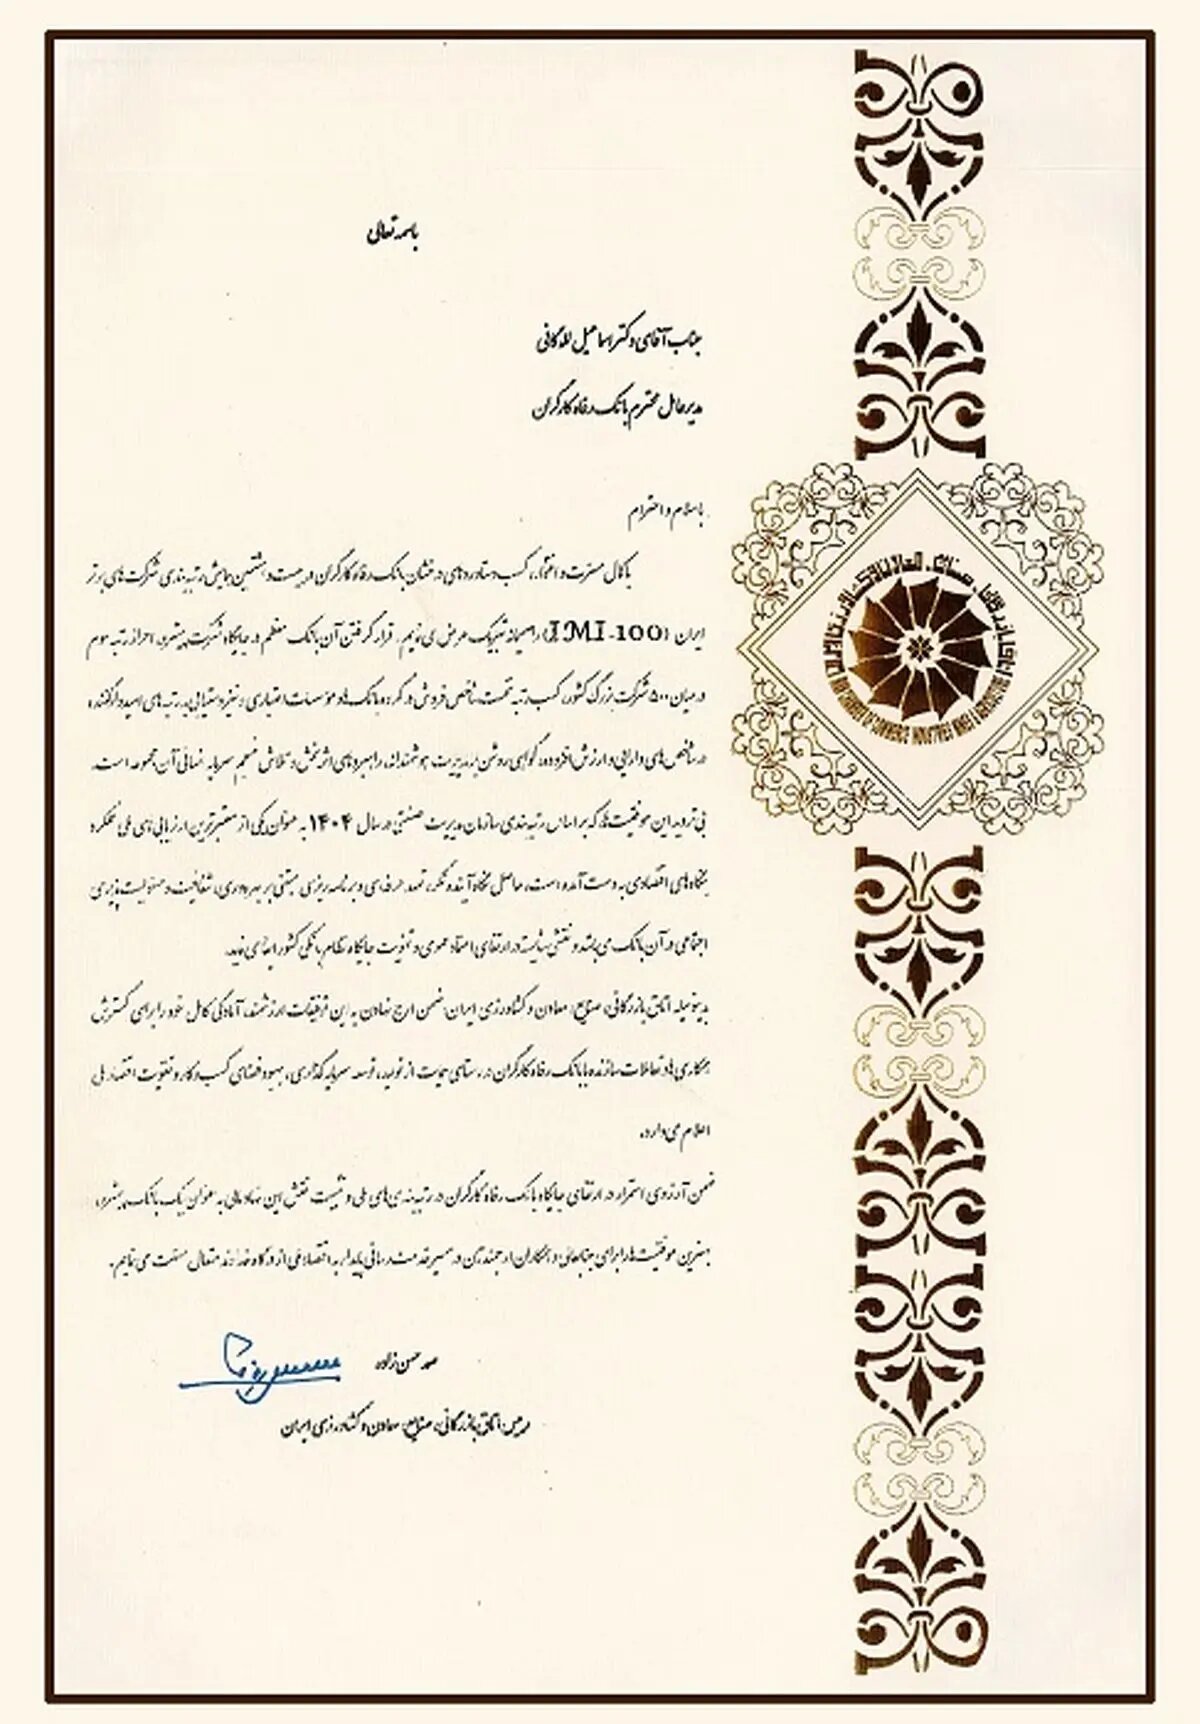 باسمه تعالی
جناب آقای دکتر اسماعیل لله گانی
مدیرعامل محترم بانک رفاه کارگران
با سلام و احترام
با کمال مسرت و افتخار، کسب دستاوردهای درخشان بانک رفاه کارگران در بیست و هشتمین همایش رتبه بندی شرکت های برتر
ایران (IMI-100) را صمیمانه تبریک عرض می نمایم. قرار گرفتن آن بانک معظم در جایگاه شرکت پیشرو، احراز رتبه سوم
در میان ۵۰۰ شرکت بزرگ کشور، کسب رتبه نخست شاخص فروش در گروه بانک ها و موسسات اعتباری و نیز دستیابی به رتبه های امیدوارکننده
در شاخص های دارایی و ارزش افزوده، گواهی روشن بر مدیریت هوشمندانه، راهبردهای اثربخش و تلاش منسجم سرمایه انسانی آن مجموعه است.
بی تردید این موفقیت ها که بر اساس رتبه بندی سازمان مدیریت صنعتی در سال ۱۴۰۴ به عنوان یکی از معتبرترین ارزیابی های ملی عملکرد
بنگاه های اقتصادی به دست آمده است، حاصل نگاه آینده نگر، تعهد حرفه ای و برنامه ریزی مبتنی بر بهره وری، شفافیت و مسئولیت پذیری
اجتماعی در آن بانک می باشد و نقشی شایسته در ارتقای اعتماد عمومی و تقویت جایگاه نظام بانکی کشور ایفا می نماید.
بدینوسیله اتاق بازرگانی، صنایع، معادن و کشاورزی ایران، ضمن ارج نهادن به این توفیقات ارزشمند، آمادگی کامل خود را برای گسترش
همکاری ها و تعاملات سازنده با بانک رفاه کارگران در راستای حمایت از تولید، توسعه سرمایه گذاری، بهبود فضای کسب و کار و تقویت اقتصاد ملی
اعلام می دارد.
ضمن آرزوی استمرار در ارتقای جایگاه بانک رفاه کارگران در رتبه بندی های ملی و تثبیت نقش این نهاد مالی به عنوان یک بانک پیشرو،
بهترین موفقیت ها را برای جنابعالی و همکاران ارجمندتان در مسیر خدمت رسانی پایدار به اقتصاد ملی از درگاه خداوند متعال مسئلت می نمایم.
صمد حسن زاده
رییس اتاق بازرگانی، صنایع، معادن و کشاورزی ایران